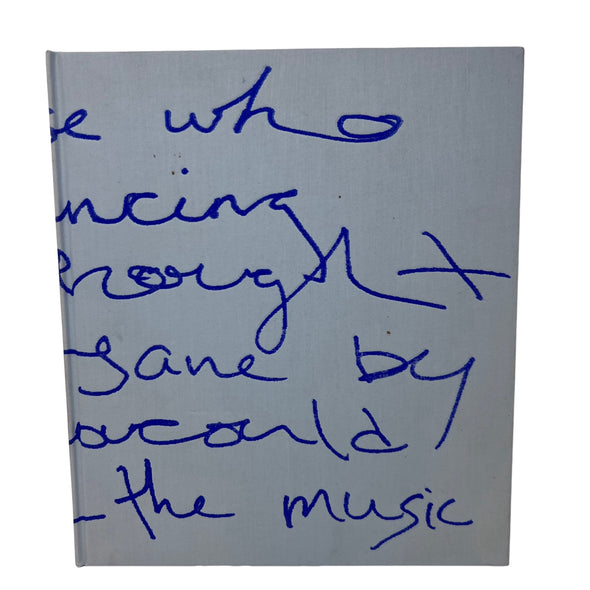 se who
ancing
hought
sane by
could
the music